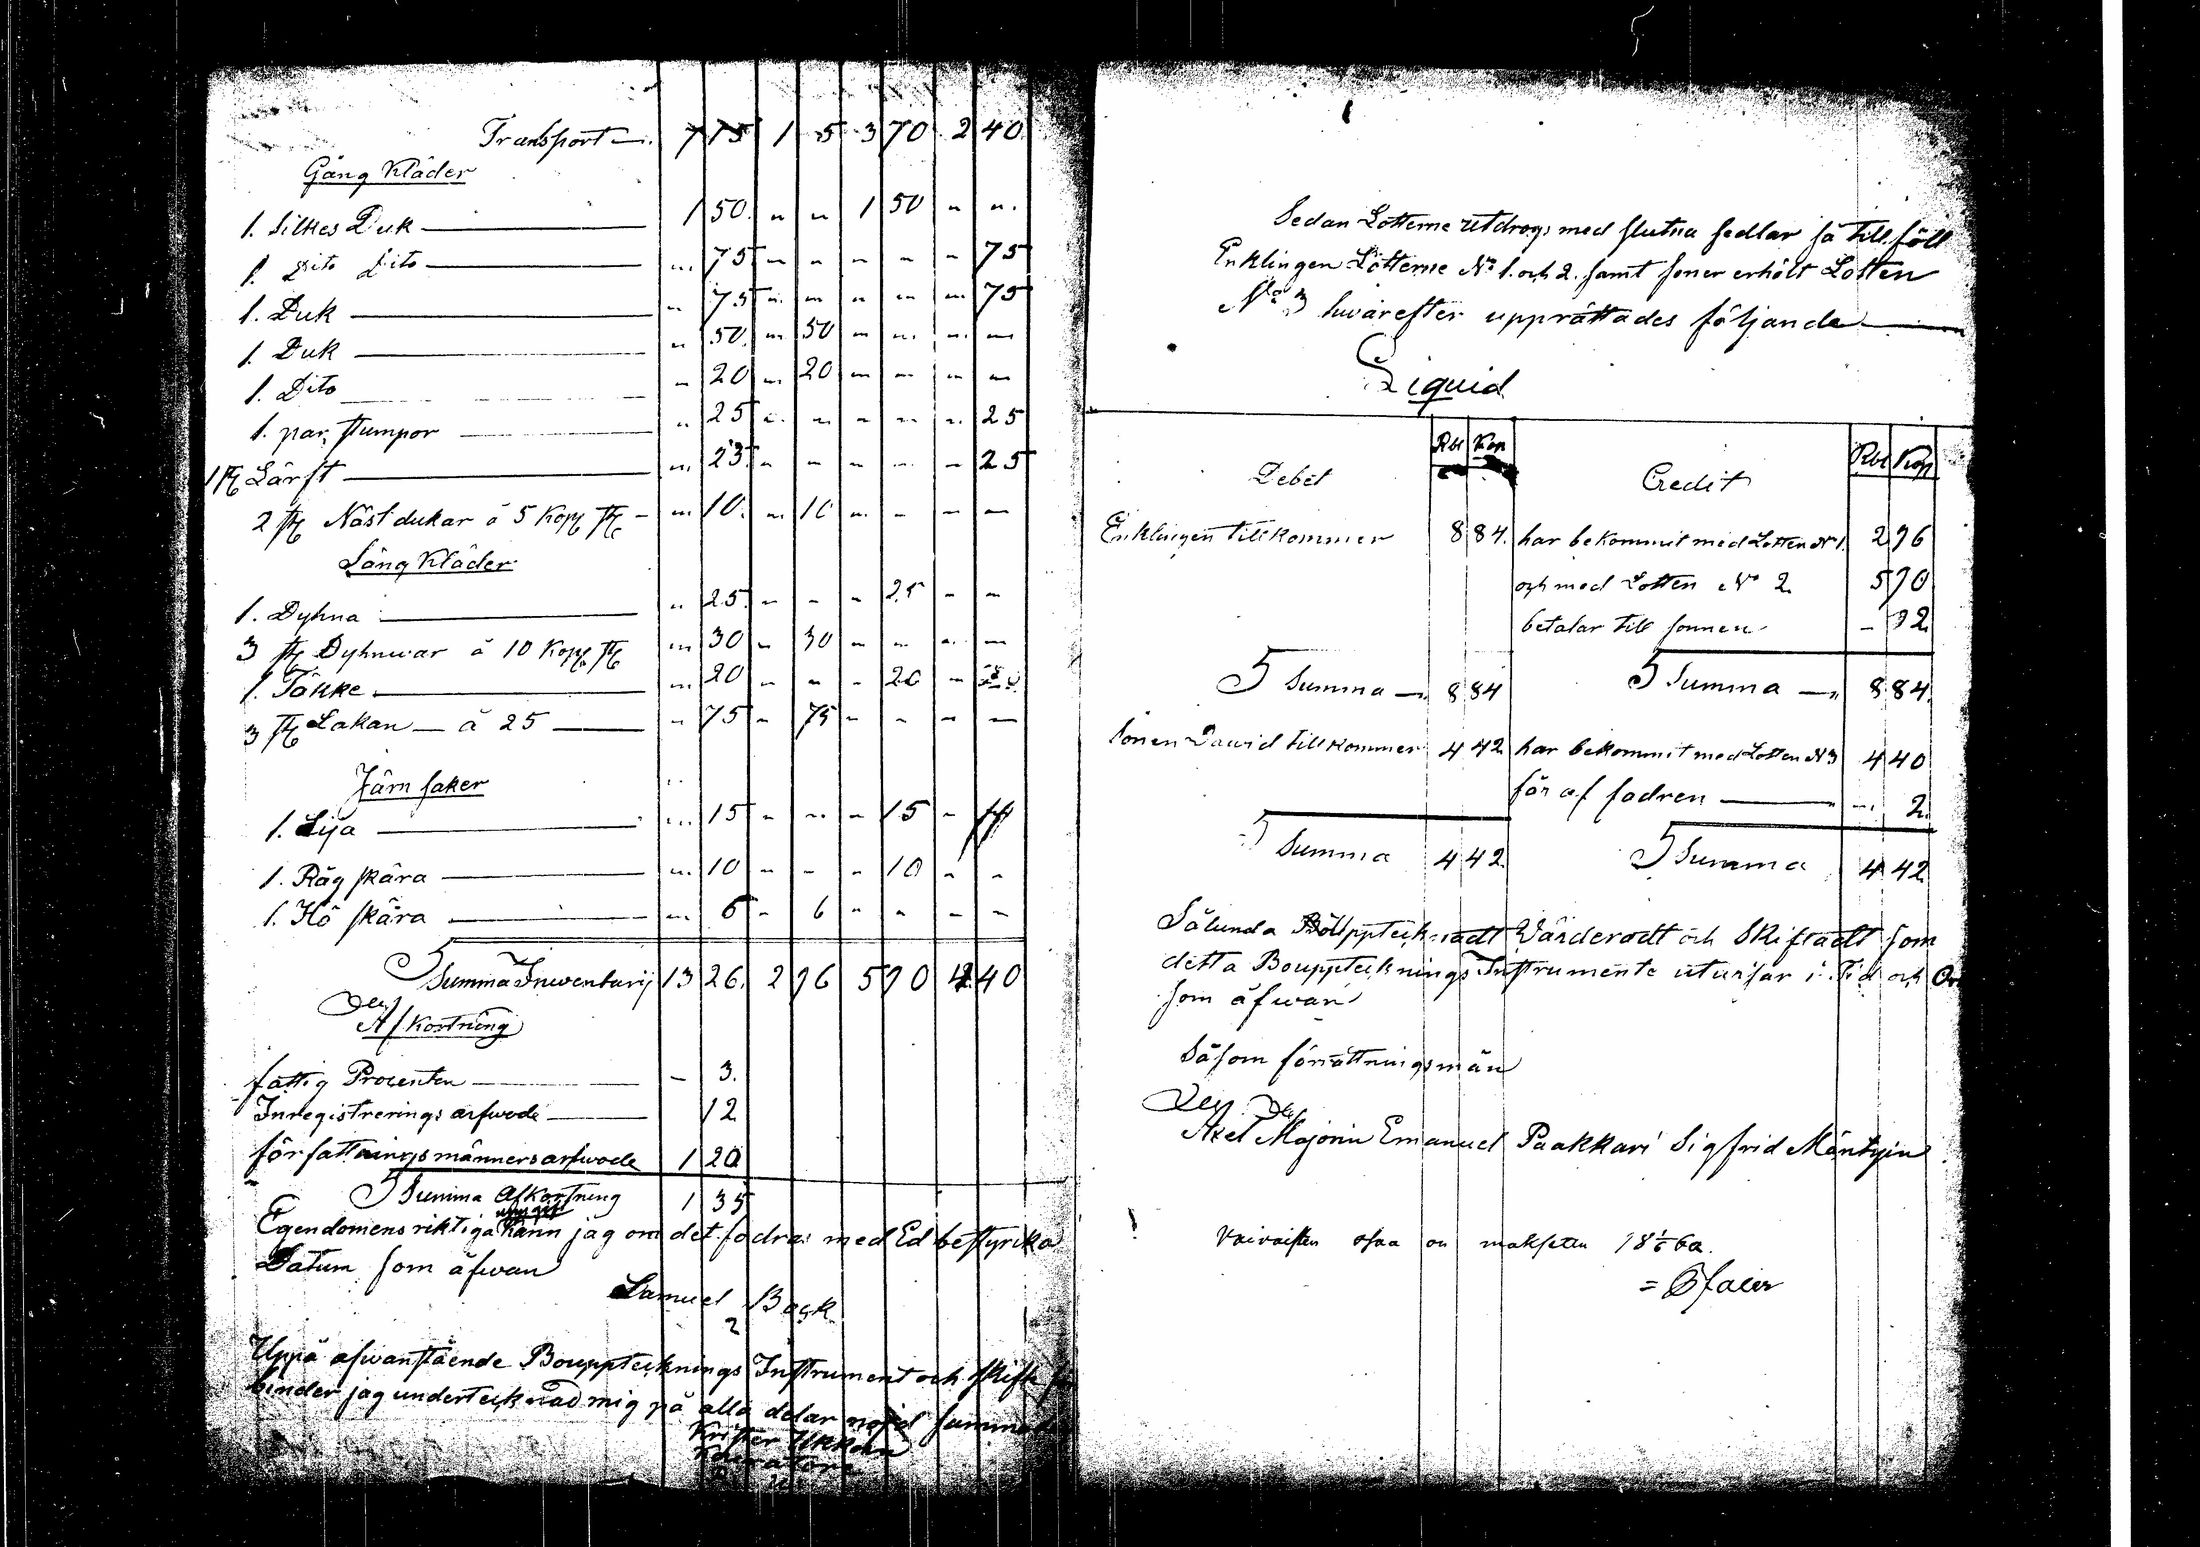 Transport 7 75 1 5 3 70 2 40
Gång Kläder
1. Silkes Duk 1 50 " " 1 50 " "
1. Dito Dito " 75 " " " " " 75
1. Duk " 75 " " " " " 75
1. Duk " 50 " 50 " " " "
1. Dito " 20 " 20 " " " "
1. par stumpor " 25 " " " " " 25
1 st Lärft " 25 " " " " " 25
2 st Näsdukar à 5 Kop st " 10 " 10 " " " "
Säng Kläder
1. Dyhna " 25 " " " 25 " "
3 st Dyhnwar à 10 Kop st " 30 " 30 " " " "
1. Täkke " 20 " " " 20 "
3 st Lakan à 25 " 75 " 75 " " " "
Järn saker
1. Lija " 15 " " " 15 "
1. Råg skära " 10 " " " 10 " "
1. Hö skära " 6 " 6 " " " "
Summa Inwentarij 13 26 2 96 5 90 4 40
Afkortning
fattig Procenten - 3
Inregistrerings arfwode 12
författningsmänners arfwode 1 20
Summa Afkortning 1 35
Egendomens riktiga Kann jag om det fodras med Ed bestyrka
Datum som åfwan
Samuel Back
Uppå afwanstående Bouppteknings Instrument och skifte
binder jag undertecknad mig på alla delar nöjd
Krister Ukkola
Sedan Lotterne utdrogs med slutna sedlar så tillföll
Enklingen Lotterne No 1. och 2. samt soner erhölt Lotten
No 3 hwarefter upprättades följande
Liquid
Debet Rbl Kop Credit Rbl Kop
Enklingen tillkommer 8 84 har bekommit med Lotten No 1. 2 96
och med Lotten No 2 5 90
betalar till sonnen - 2
Summa 8 84 Summa 8 84
Sonen Dawid tillkommer 4 42 har bekommit med Lotten No 3 4 40
får af fadren " 2
Summa 4 42 Summa 4 42
Sålunda Bouppteknadt Wärderadt och Skiftadt som
detta Bouppteknings Instrumente utwisar i Tid och
som åfwan
Såsom förrättningsmän
Axel Majorin Emanuel Paakkari Sigfrid Mäntyin
Vaivaisten osaa on maksettu 18 1/6 62